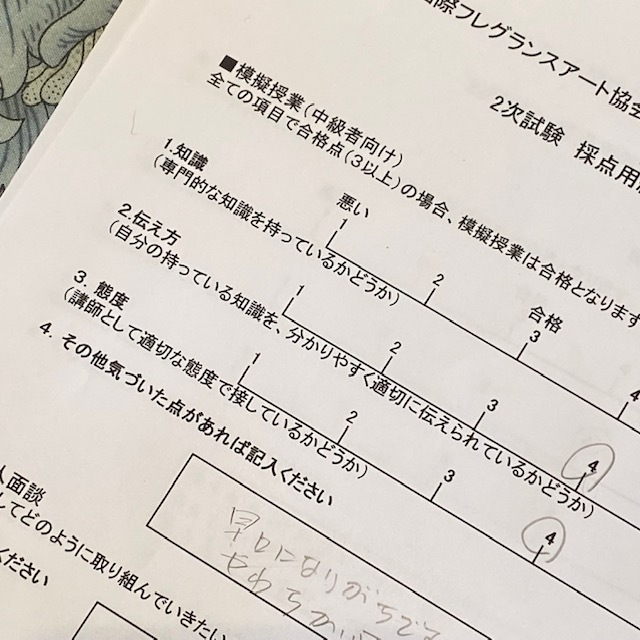 際フレグランスアート協会
2次試験 採点用
■模擬授業(中級者向け)
全ての項目で合格点(3以上)の場合、模擬授業は合格となります
悪い
合格
1.知識
(専門的な知識を持っているかどうか)
1 2 3 4
2.伝え方
(自分の持っている知識を、分かりやすく適切に伝えられているかどうか)
1 2 3 4
3. 態度
(講師として適切な態度で接しているかどうか)
1 2 3 4
4. その他気づいた点があれば記入ください
早口になりがちで
人面談
してどのように取り組んでいきたい
ください